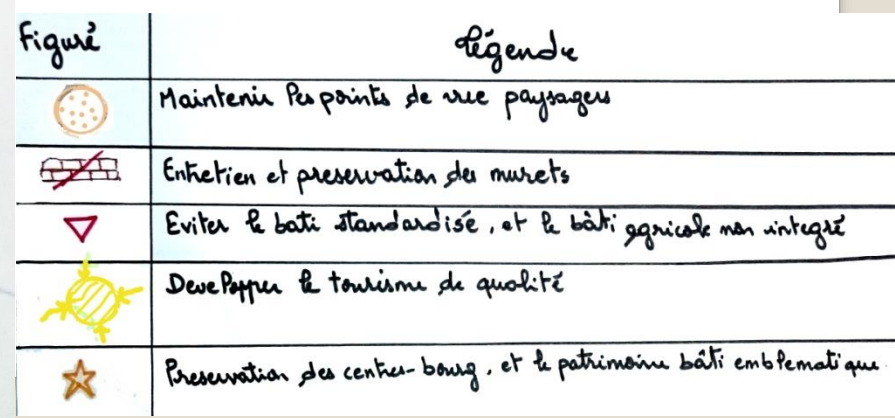 Figuré Légende
Maintenir les points de vue paysagers
Entretien et preservation des murets
Eviter le bati standardisé, et le bâti agricole non integré
Developper le tourisme de qualité
Preservation des centres-bourg, et le patrimoine bâti emblematique.